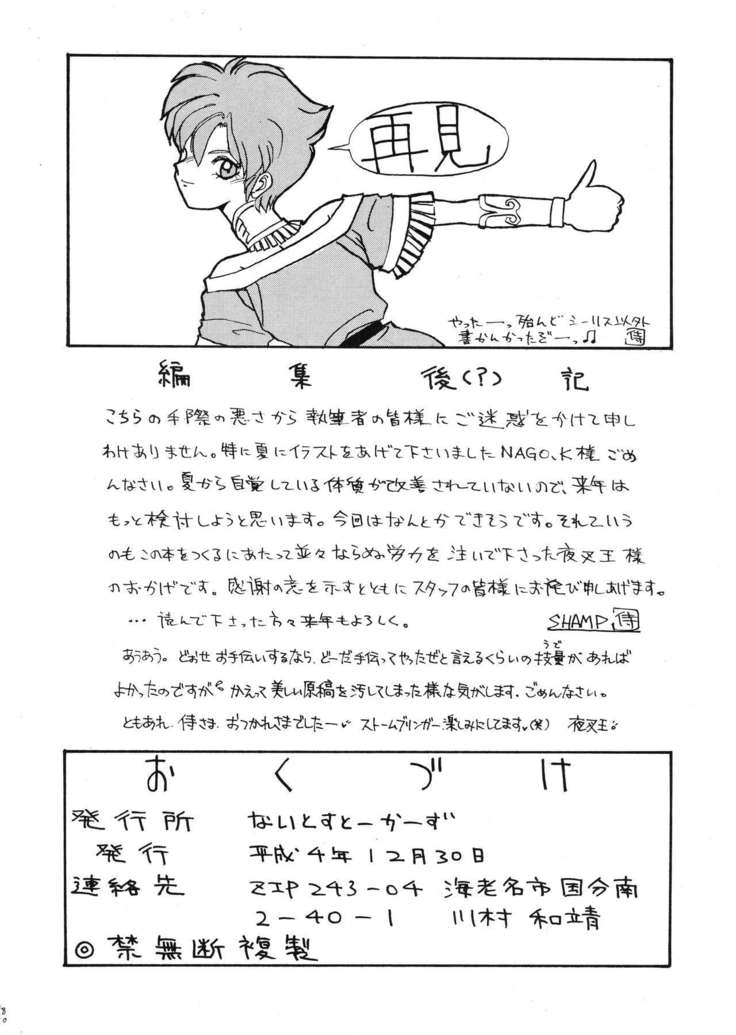 再見
やったーっ殆んどシーリス以外
書かんかったぞーっ♫ 侍
編集後(?)記
こちらの手際の悪さから執筆者の皆様にご迷惑をかけて申し
わけありません。特に夏にイラストをあげて下さいましたNAGO.K様ごめ
んなさい。夏から自覚している体質が改善されていないので、来年は
もっと検討しようと思います。今回はなんとかできそうです。それていう
のもこの本をつくるにあたって並々ならぬ労力を注いで下さった夜叉王様
のおかげです。感謝の意を示すとともにスタッフの皆様にお詫び申しあげます。
…読んで下さった方々来年もよろしく。 SHAMP.侍
うで
あうあう。どおせお手伝いするなら、どーだ手伝ってやったぜと言えるくらいの技量があれば
よかったのですが かえって美しい原稿を汚してしまった様な気がします。ごめんなさい。
ともあれ、侍さま、おつかれさまでしたー ストームブリンガー、楽しみにしてます。(笑) 夜叉王
おくづけ
発行所 ないとすとーかーず
発行 平成4年12月30日
連絡先 ZIP243-04 海老名市国分南
2-40-1 川村和靖
◎禁無断複製
80